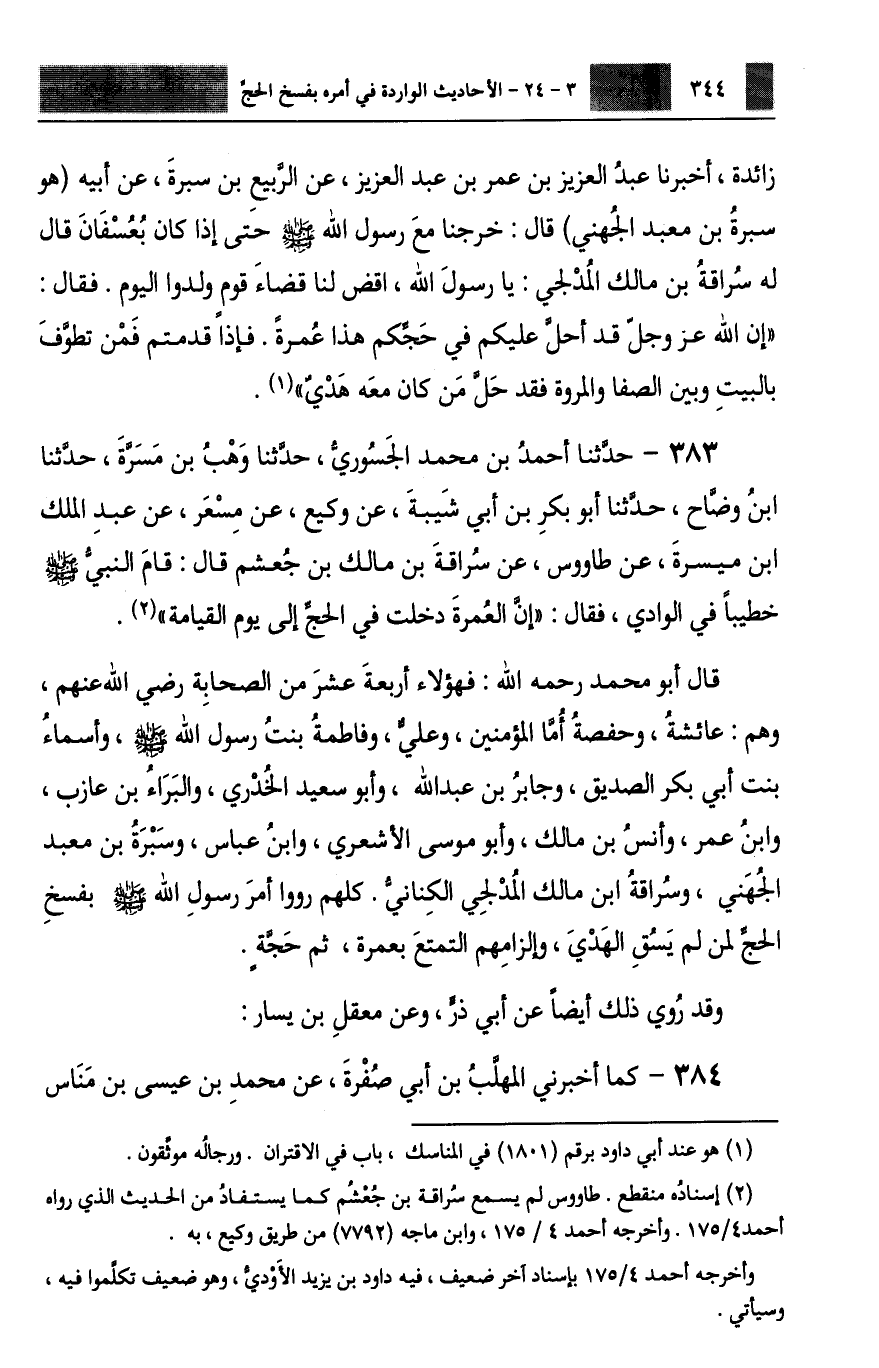 ٣٤٤ ٣ - ٢٤ - الأحاديث الواردة في أمره بفسخ الحجِّ
زائدة ، أخبرنا عبدُ العزيز بن عمر بن عبد العزيز ، عن الرَّبيعِ بن سبرةَ ، عن أبيه (هو
سبرةُ بن معبد الجُهني) قال : خرجنا معَ رسول الله ﷺ حتى إذا كان بُعُسْفَانَ قال
له سُراقةُ بن مالك المُدْلجي : يا رسولَ الله ، اقض لنا قضاءَ قوم ولدوا اليوم . فقال :
«إن الله عز وجلّ قد أحلَّ عليكم في حَجِّكم هذا عُمرةً . فإذاً قدمتم فَمْن تطوَّفَ
بالبيتِ وبين الصفا والمروة فقد حَلَّ مَن كان معَه هَدْيٌ»(١) .
٣٨٣ - حدَّثنا أحمدُ بن محمد الجَسُوريُّ ، حدَّثنا وَهْبُ بن مَسَرَّةَ ، حدَّثنا
ابنُ وضَّاح ، حدَّثنا أبو بكرِ بن أبي شَيبةَ ، عن وكيع ، عن مِسْعَر ، عن عبدِ الملك
ابن ميسرةَ ، عن طاووس ، عن سُراقةَ بن مالك بن جُعشم قال : قامَ النبيُّ ﷺ
خطيباً في الوادي ، فقال : «إنَّ العُمرةَ دخلت في الحجِّ إلى يوم القيامة»(٢) .
قال أبو محمد رحمه الله : فهؤلاء أربعةَ عشرَ من الصحابة رضي الله عنهم ،
وهم : عائشةُ ، وحفصةُ أُمَّا المؤمنين ، وعليٌّ ، وفاطمةُ بنتُ رسول الله ﷺ ، وأسماءُ
بنت أبي بكر الصديق ، وجابرُ بن عبدالله ، وأبو سعيد الخُدْري ، والبَرَاءُ بن عازب ،
وابنُ عمر ، وأنسُ بن مالك ، وأبو موسى الأشعري ، وابنُ عباس ، وسَبْرَةُ بن معبد
الجُهَني ، وسُراقةُ ابن مالك المُدْلجي الكِنانيُّ . كلهم رووا أمرَ رسولِ الله ﷺ بفسخِ
الحجِّ لمن لم يَسُقِ الهَدْيَ ، وإلزامِهم التمتعَ بعمرة ، ثم حَجَّةٍ .
وقد رُوي ذلك أيضاً عن أبي ذرٍّ ، وعن معقلِ بن يسار :
٣٨٤ - كما أخبرني المهلَّبُ بن أبي صُفْرةَ ، عن محمدِ بن عيسى بن مَنَاس
(١) هو عند أبي داود برقم (١٨٠١) في المناسك ، باب في الاقتران . ورجالُه موثَّقون .
(٢) إسنادُه منقطع . طاووس لم يسمع سُراقة بن جُعْشُم كما يستفادُ من الحديث الذي رواه
أحمد١٧٥/٤ . وأخرجه أحمد ٤ / ١٧٥ ، وابن ماجه (٧٧٩٢) من طريق وكيع ، به .
وأخرجه أحمد ١٧٥/٤ بإسناد آخر ضعيف ، فيه داود بن يزيد الأَوْديُّ ، وهو ضعيف تكلَّموا فيه ،
وسيأتي .